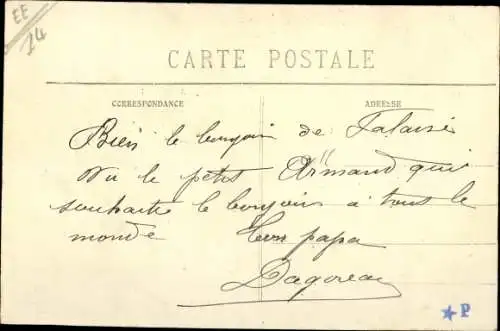 EE
14
CARTE POSTALE
CORRESPONDANCE
ADRESSE
Bien le bonjour de Falaise
Vu le petit Armand qui
souhaite le bonjour à tout le
monde
papa
P